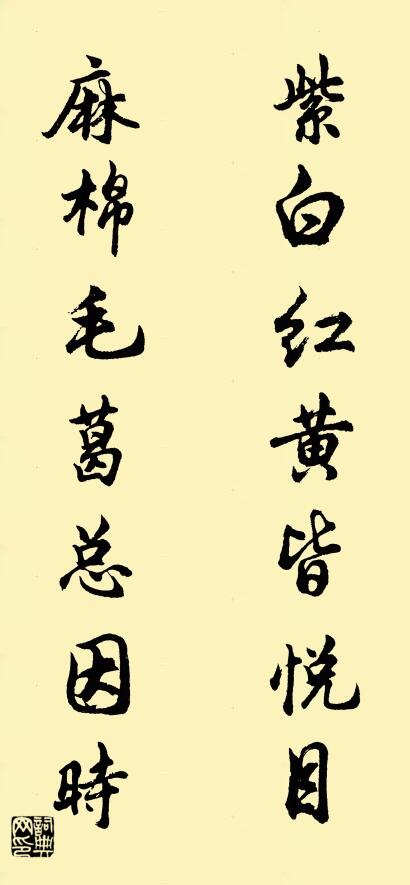 紫白红黄皆悦目
麻棉毛葛总因時
詞典网印